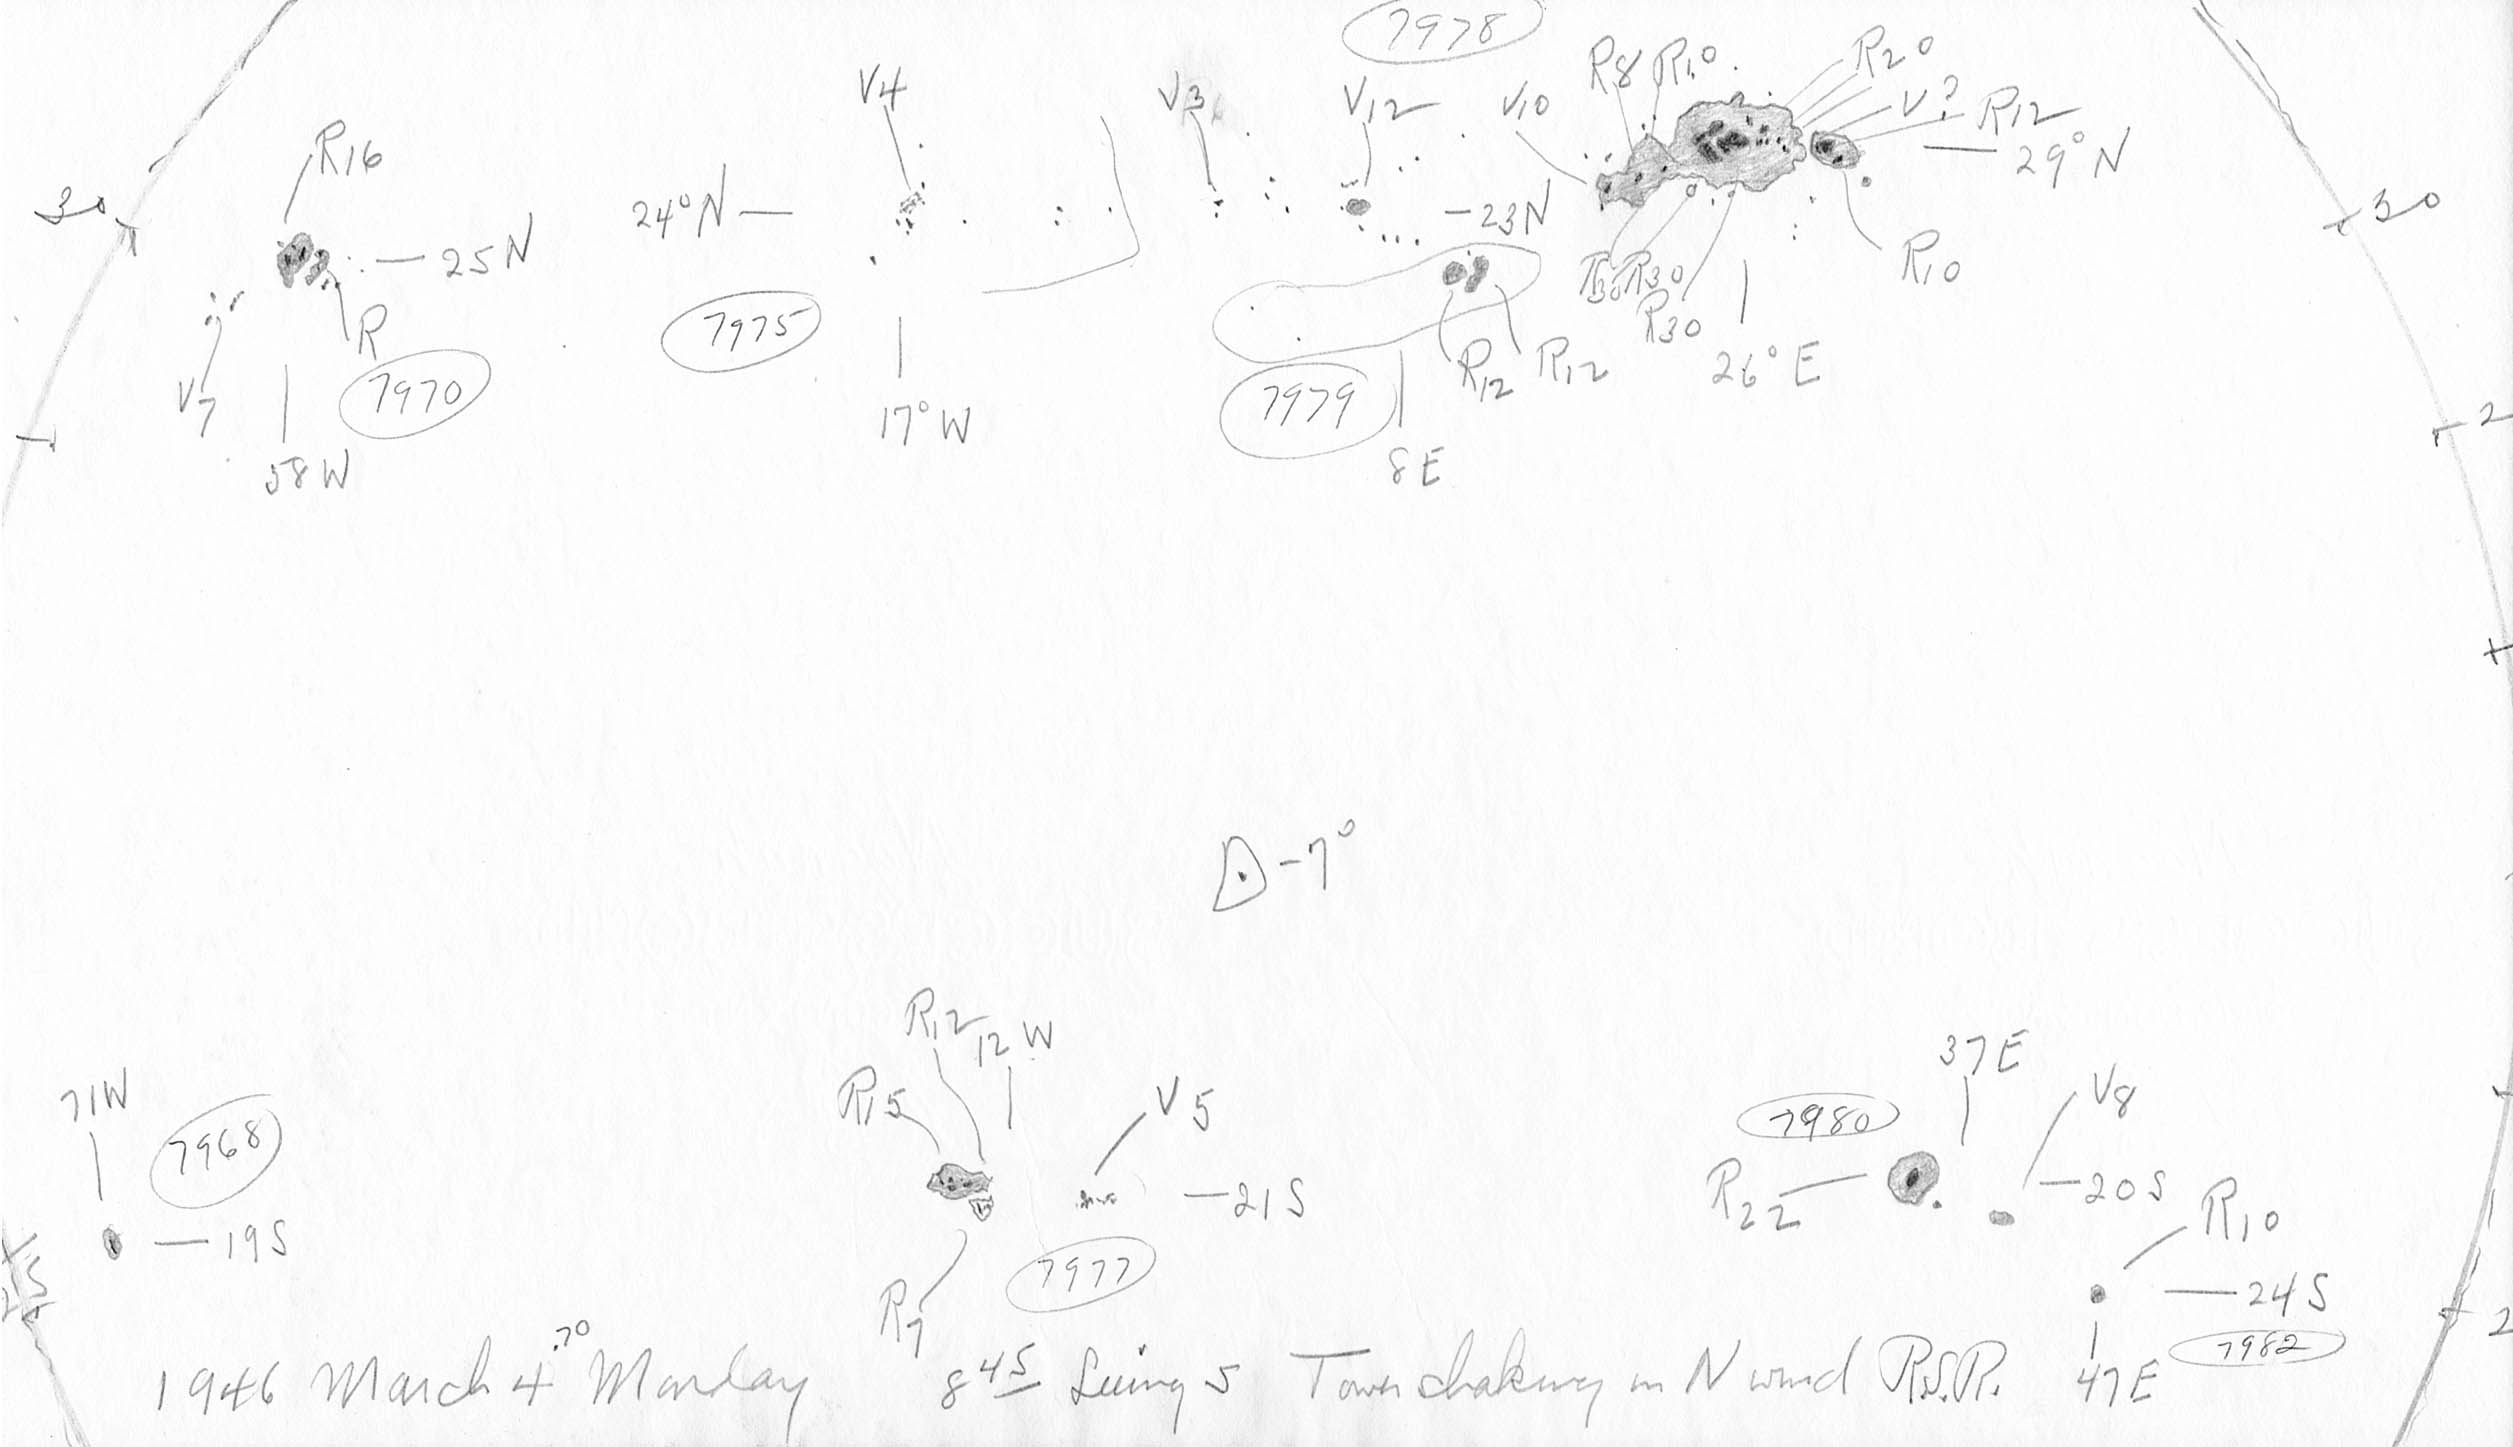 7978
V4
V3
V12
V10
R8 R10
R20
V?
R12
29° N
R16
30
24° N
23N
30
25 N
R30
R30
R10
7975
R
7970
V7
R12 R12
26° E
7979
17° W
8 E
58 W
2
-7°
R12
12 W
R15
V5
37 E
V8
71W
7968
7980
R22
20S
21S
R10
19S
7977
24 S
R7
7982
47 E
1946 March 4.70 Monday 8 45 Seeing 5 Tower shaking in N wind R.S.R.
2